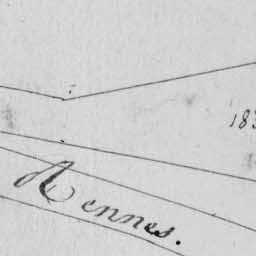 183
Rennes.